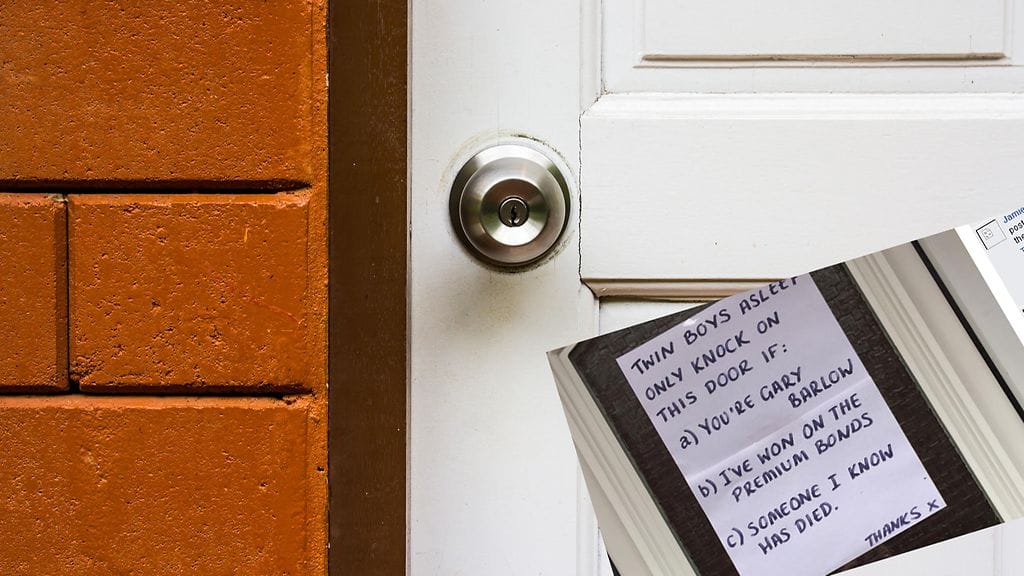 TWIN BOYS ASLEEP
ONLY KNOCK ON
THIS DOOR IF:
a) YOU'RE GARY
BARLOW
b) I'VE WON ON THE
PREMIUM BONDS
c) SOMEONE I KNOW
HAS DIED.
THANKS X
Jamie
post
the